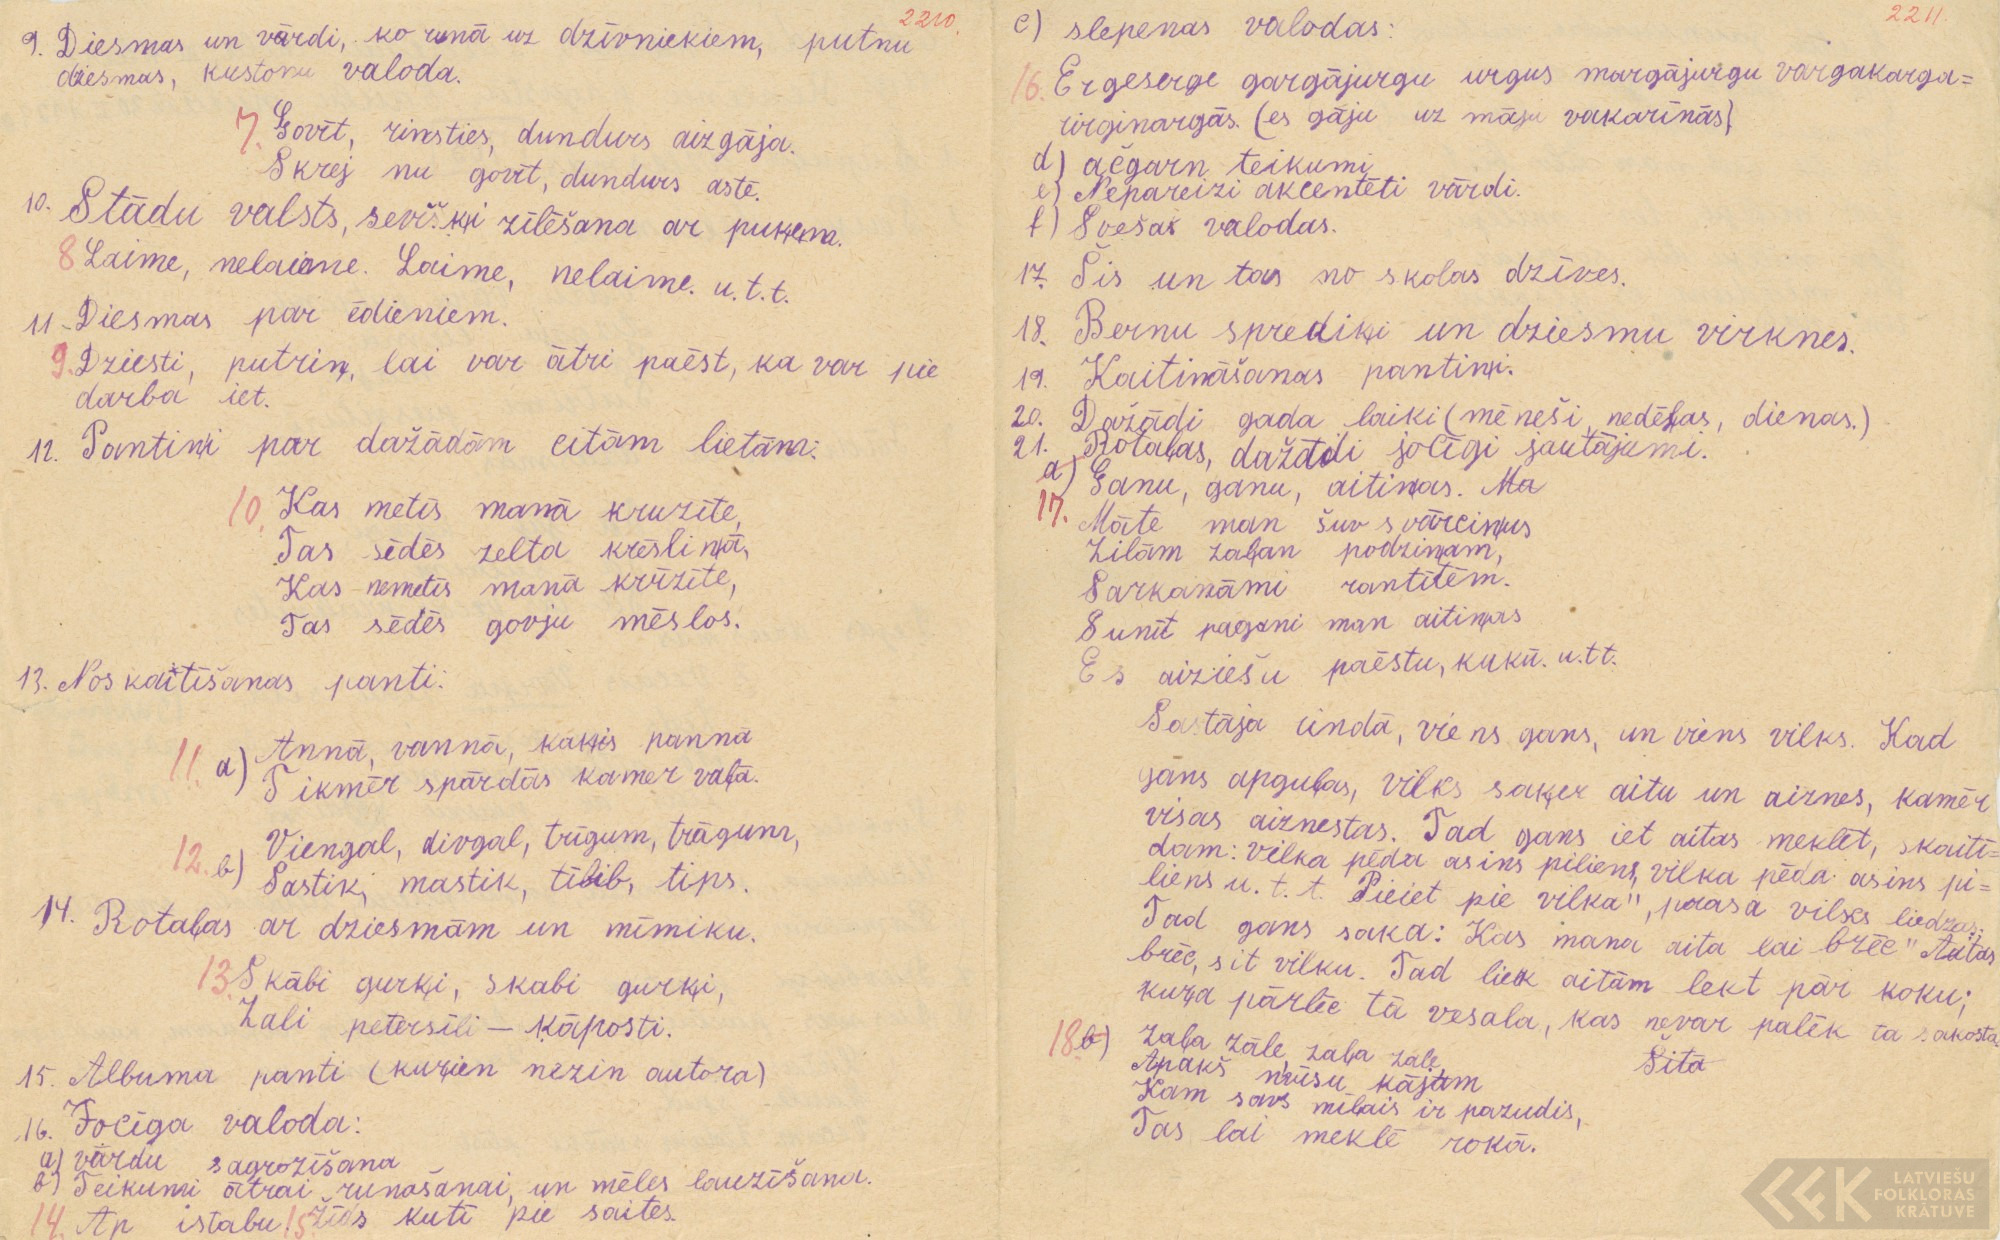 2210.
9. Diesmas un vārdi, ko runā uz dzīvniekiem, putnu
dziesmas, kustoņu valoda.
7. Govīt, rinsties, dundurs aizgāja.
Skrej nu govīt, dundurs astē.
10. Stādu valsts, sevišķi zīlēšana ar puķem.
8 Laime, nelaime. Laime, nelaime. u.t.t.
11. Diesmas par ēdieniem.
9. Dziesti, putriņ, lai var ātri paēst, ka var pie
darba iet.
12. Pantiņi par dažādām citām lietām:
10. Kas metīs manā kruzīte,
Tas sēdēs zelta krēsliņā,
Kas nemetīs manā krūzīte,
Tas sēdēs govju mēslos.
13. Noskaitīšanas panti:
11. a) Annā, vannā, kaķis pannā
Tikmēr spārdās kamer vaļā.
12. b) Viengal, divgal, trīgum, trāgum,
Sastiķ, mastik, tībib, tips.
14. Rotaļas ar dziesmām un mīmiku.
13. Skābi gurķi, skabi gurķi,
Zali petersīli – kāposti.
15. Albuma panti (kuŗien nezin autora)
16. Jocīga valoda:
a) vārdu sagrozīšana
b) Teikumi ātrai runašanai, un mēles lauzīšana.
14. Ap istabu. 15. Žīds kutī pie saites.
2211.
c) slepenas valodas:
16. Ergeserge gargājurgu urgus margājurgu vargakarga=
rirginargās. (es gāju uz māju vakariņās)
d) ačgarn teikumi
e) Nepareizi akcentēti vārdi.
f) Svešas valodas.
17. Šis un tas no skolas dzīves.
18. Bernu sprediķi un dziesmu virknes.
19. Kaitināšanas pantiņi.
20. Dažādi gada laiki (mēneši, nedēļas, dienas.)
21. Rotaļas, dažādi jocīgi jautājumi.
a) Ganu, ganu, aitiņas. Ma
17. Māte man šuv svārciņus
Zilām zaļan podziņam,
Sarkanāmi rantītēm.
Sunīt pagani man aitiņas
Es aiziešu paēstu, kukū. u.t.t.
Sastāja rindā, viens gans, un viens vilks. Kad
gans apguļas, vilks saķer aitu un aiznes, kamēr
visas aiznestas. Tad gans iet aitas meklēt, skaitī=
dam: vilka pēda asins piliens, vilka pēda asins pi=
liens u. t. t. Pieiet pie vilka", prasa vilks liedzas.
Tad gans saka: Kas mana aita lai brēc" Aitas
brēc, sit vilku. Tad liek aitām lekt pār koku;
kuŗa pārlēc tā vesala, kas nevar palēk ta sakosta.
18. b) Zaļa zāle, zaļa zāle, Šitā
Apakš mūsu kājām
Kam savs mīļais ir pazudis,
Tas lai meklē rokā.
LATVIEŠU
FOLKLORAS
KRĀTUVE